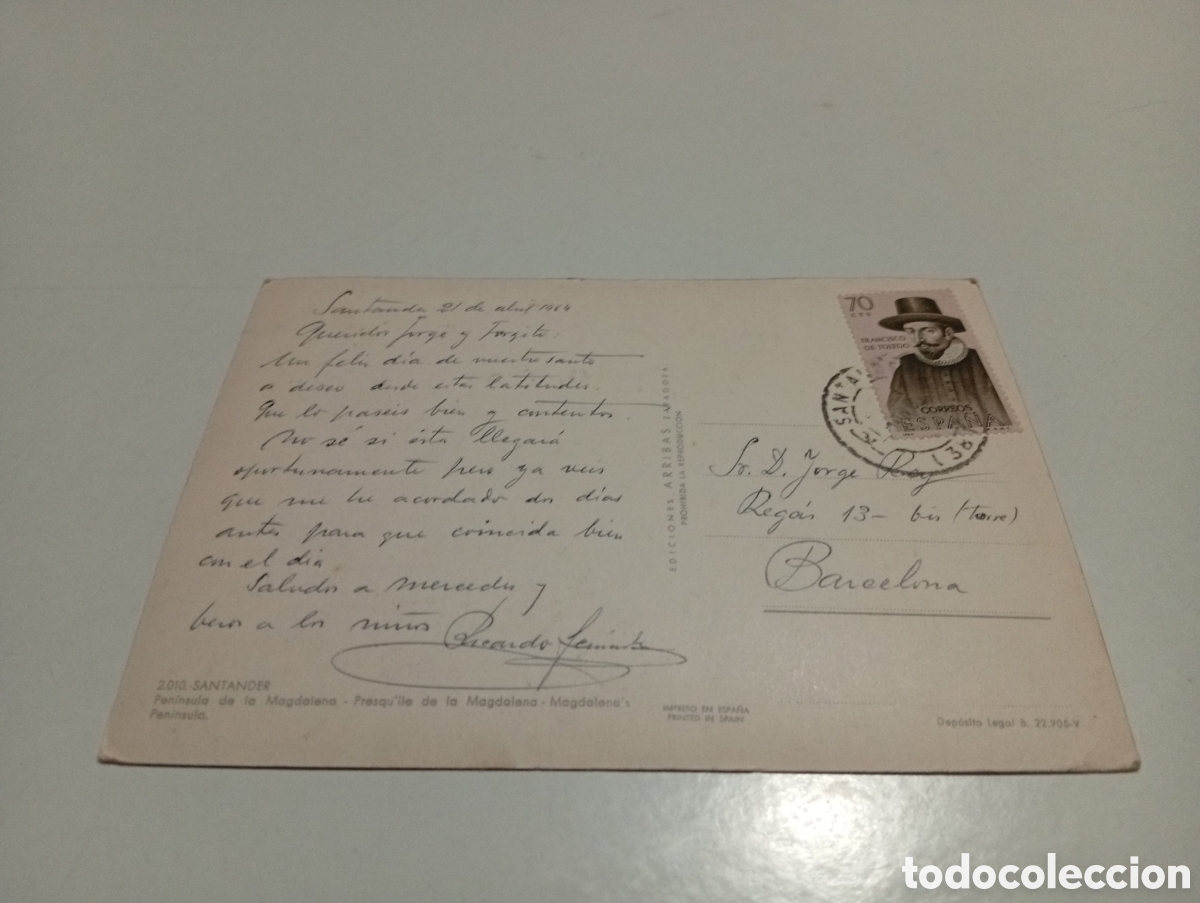 Santander 21 de abril 1964
Queridos Jorge y Jorgito:
Un feliz día de nuestro santo
os deseo desde estas latitudes.
Que lo paseis bien y contentos.
No sé si ésta llegará
oportunamente pero ya veis
que me he acordado dos días
antes para que coincida bien
con el día.
Saludos a Mercedes y
besos a los niños
Ricardo
2.010.-SANTANDER
Península de la Magdalena - Presqu'ile de la Magdalena - Magdalena's
Península.
EDICIONES ARRIBAS ZARAGOZA
PROHIBIDA LA REPRODUCCION
IMPRESO EN ESPAÑA
PRINTED IN SPAIN
70
CTS
FRANCISCO
DE TOLEDO
CORREOS
ESPAÑA
Sr. D. Jorge Rey
Regás 13- bis (torre)
Barcelona
Depósito Legal B. 22.905-V
todocoleccion